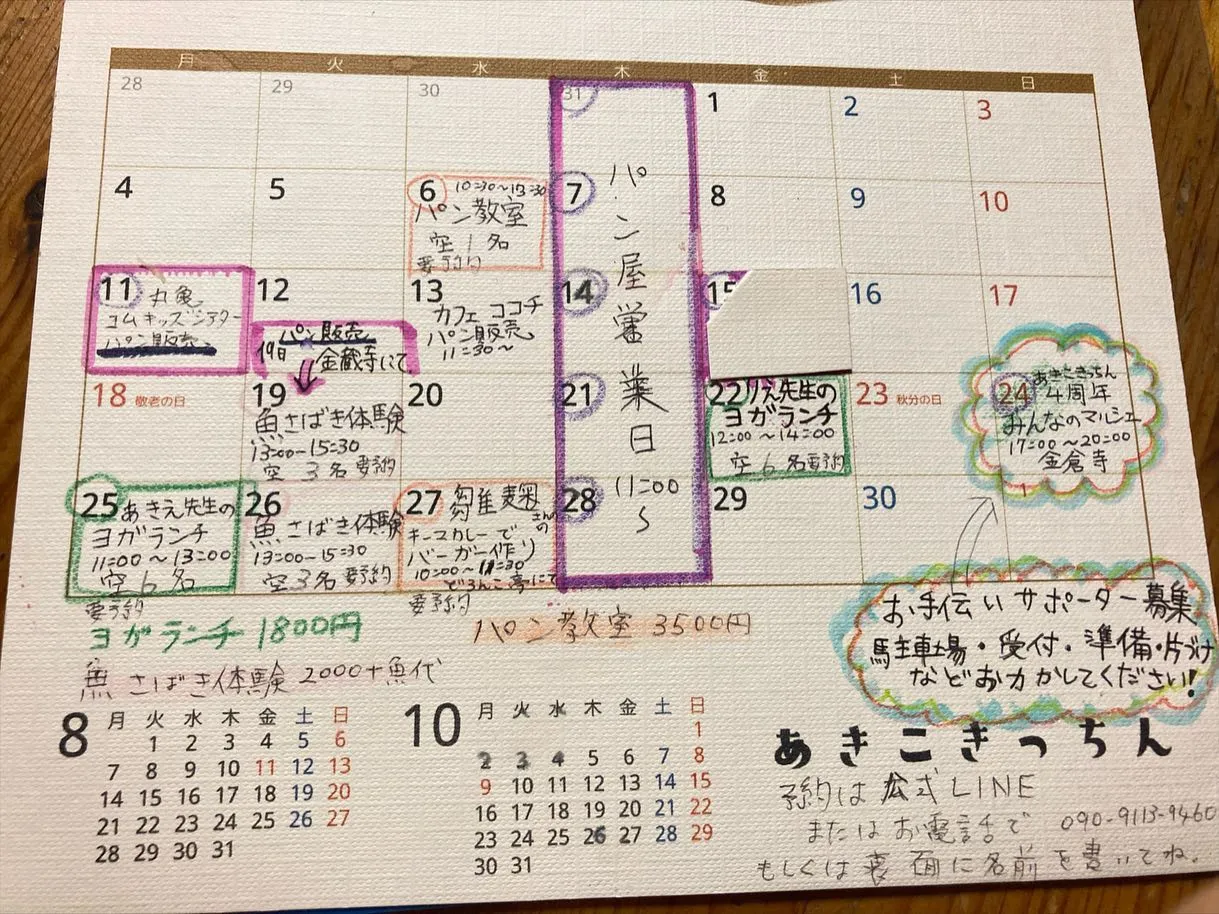 月 火 水 木 金 土 日
28 29 30 31 1 2 3
4 5 6 7 8 9 10
10:30〜13:30
パン教室
空1名
要予約
パン屋営業日 11:00〜
11 12 13 14 15 16 17
丸亀
コムキッズシアター
パン販売
パン販売
19日 金蔵寺にて
カフェ ココチ
パン販売
11:30〜
18 敬老の日 19 20 21 22 23 秋分の日 24
魚さばき体験
13:00-15:30
空3名要予約
りえ先生の
ヨガランチ
12:00〜14:00
空6名要予約
あきこきっちん
4周年
みんなのマルシェ
17:00〜20:00
金倉寺
25 26 27 28 29 30 1
あきえ先生の
ヨガランチ
11:00〜13:00
空6名
要予約
魚さばき体験
13:00-15:30
空3名要予約
さんの
キーマカレーで
バーガー作り
どろんこ亭にて
要予約
ヨガランチ 1800円
パン教室 3500円
魚さばき体験 2000+魚代
お手伝いサポーター募集
駐車場・受付・準備・片づけ
などお力かしてください!
8
月 火 水 木 金 土 日
1 2 3 4 5 6
7 8 9 10 11 12 13
14 15 16 17 18 19 20
21 22 23 24 25 26 27
28 29 30 31
10
月 火 水 木 金 土 日
1
2 3 4 5 6 7 8
9 10 11 12 13 14 15
16 17 18 19 20 21 22
23 24 25 26 27 28 29
30 31
あきこきっちん
予約は公式LINE
またはお電話で 090-9113-9460
もしくは裏面に名前を書いてね。